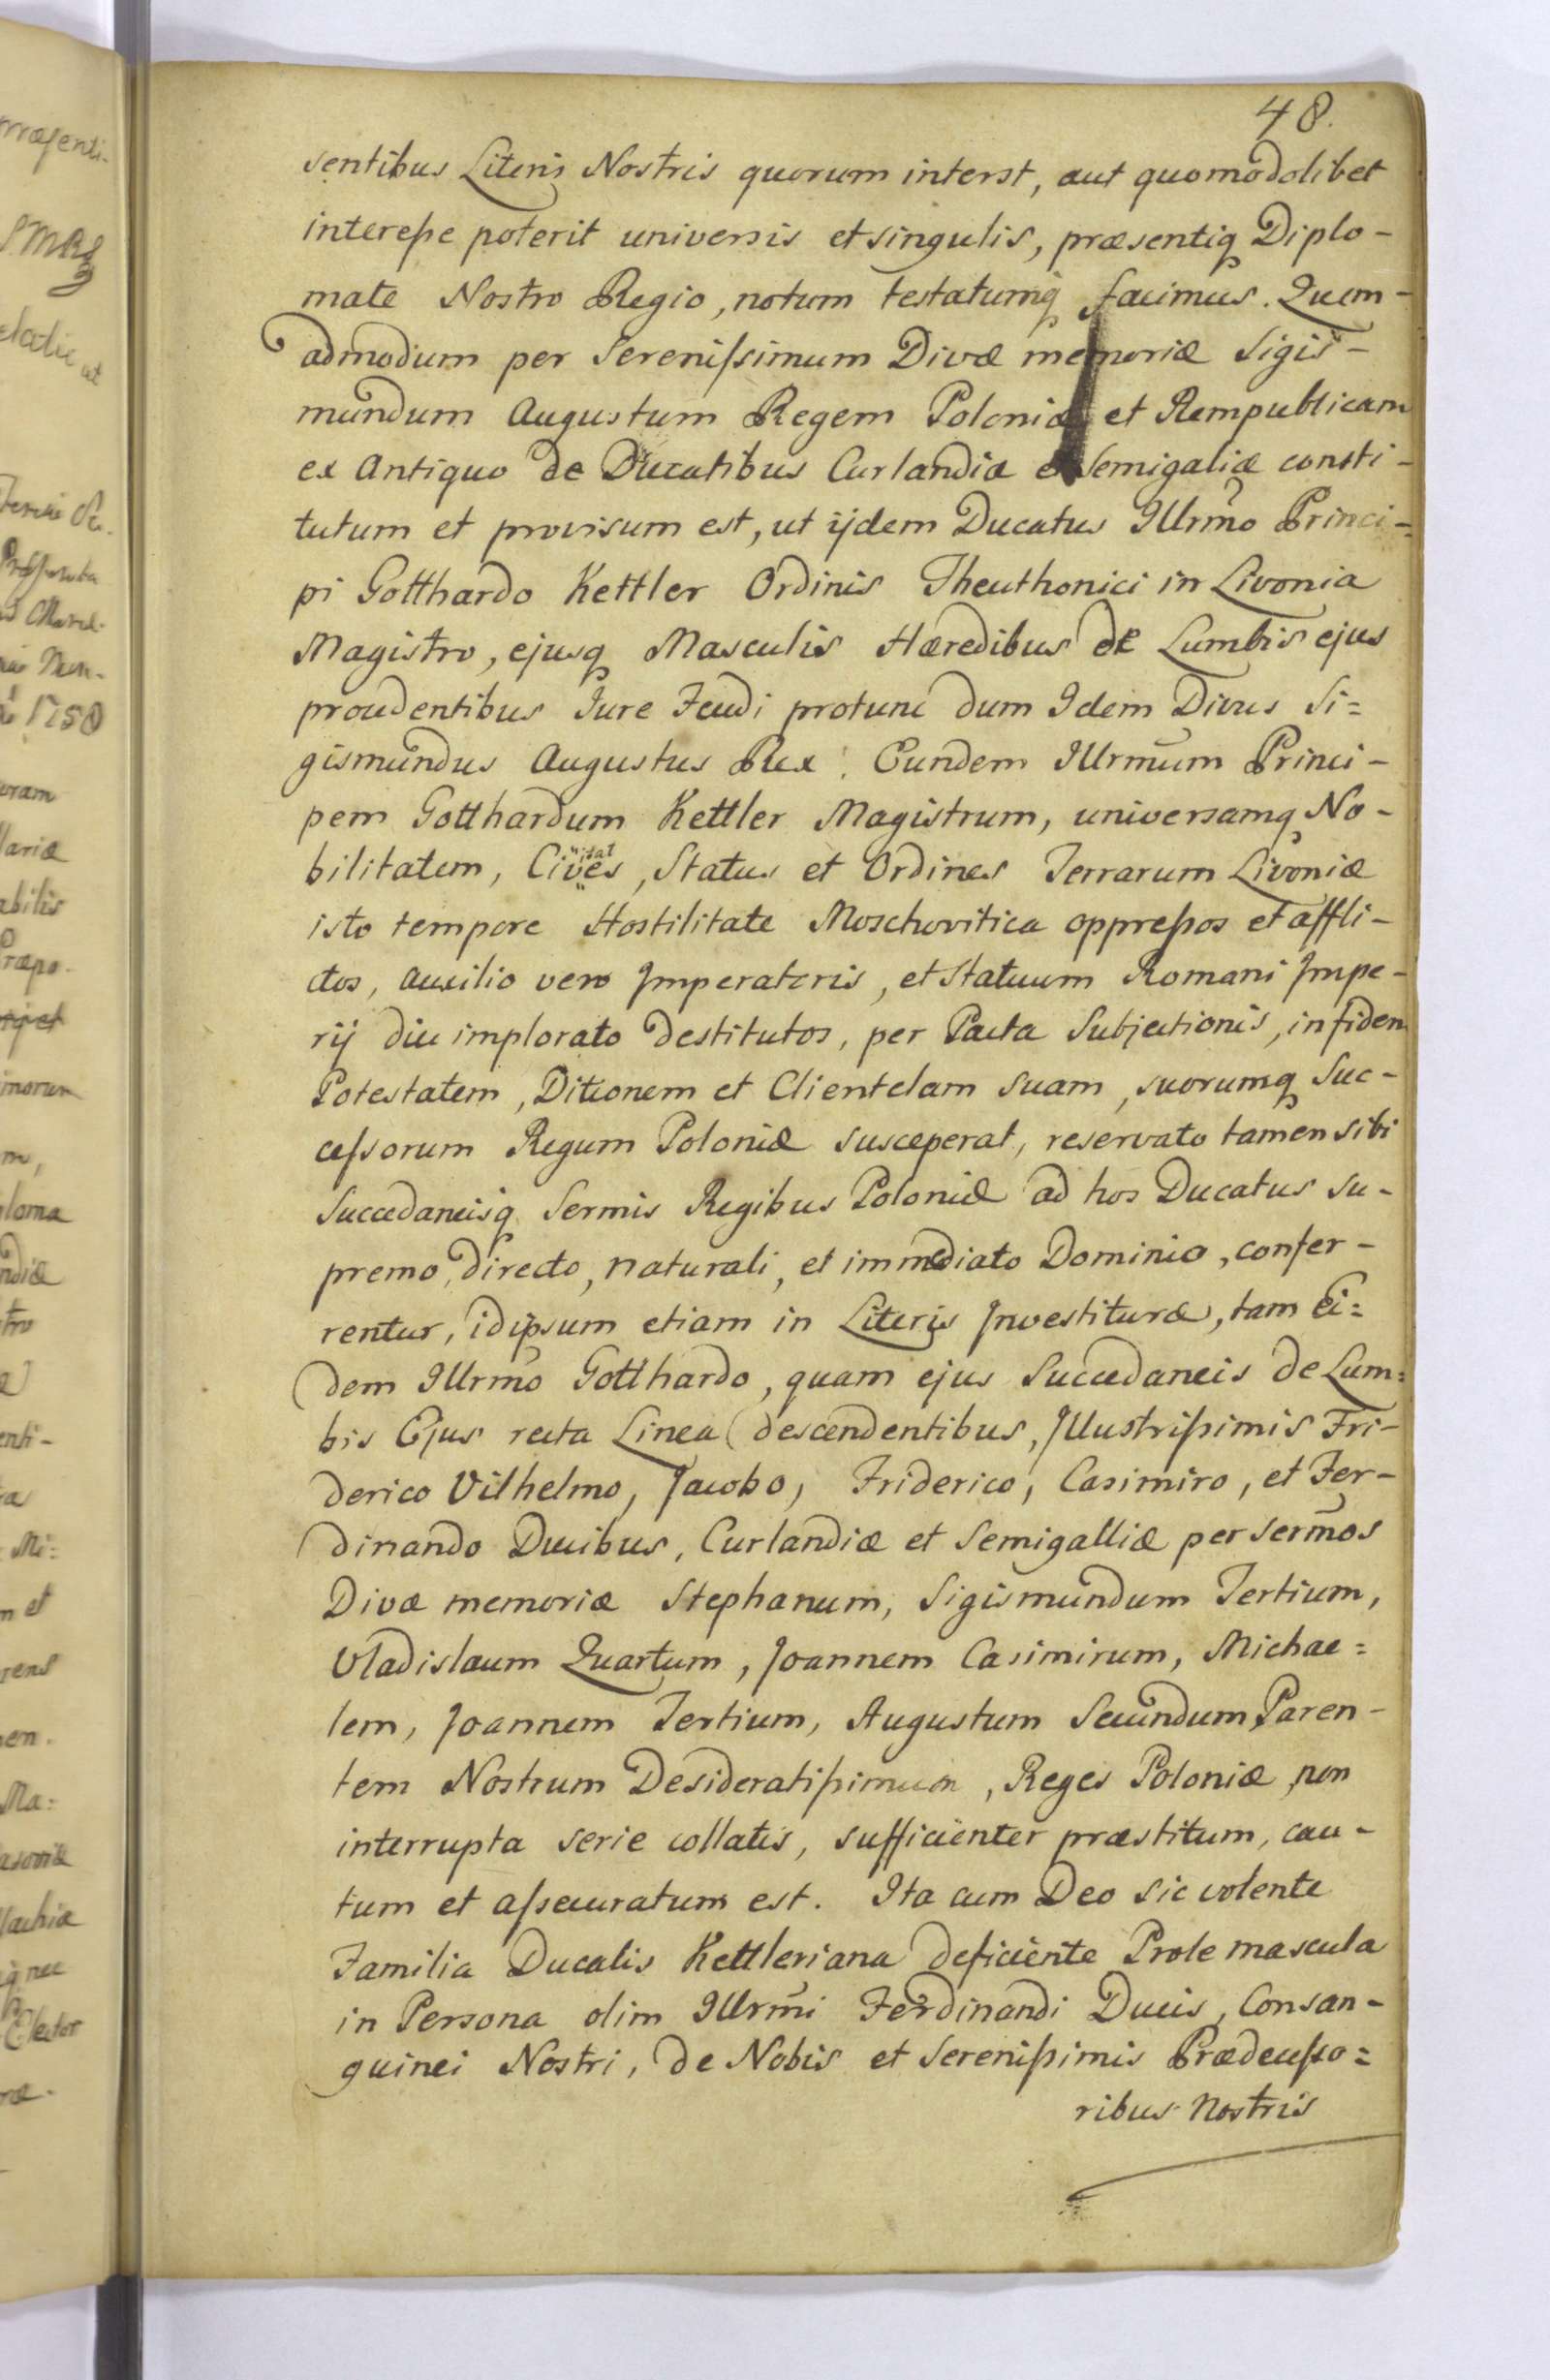 48.
sentibus Literis Nostris quorum interest, aut quomodolibet
interesse poterit universis et singulis, præsentiq Diplo-
mate Nostro Regio, notum testatumq facimus. Quem-
admodum per Serenissimum Divæ memoriæ Sigis-
mundum Augustum Regem Poloniæ et Rempublicam
ex Antiquo de Ducatibus Curlandiæ et Semigaliæ consti-
tutum et provisum est, ut ijdem Ducatus Illrmo Princi-
pi Gotthardo Kettler Ordinis Theuthonici in Livonia
Magistro, ejusq Masculis Hæredibus de Lumbis ejus
proudentibus Jure Feudi protunc dum Idem Divus Si=
gismundus Augustus Rex. Eundem Illrmum Princi-
pem Gotthardum Kettler Magistrum, universamq No-
bilitatem, Civitates, Status et Ordines Terrarum Livoniæ
isto tempore Hostilitate Moschovitica oppressos et affli-
ctos, auxilio vero Imperatoris, et Statuum Romani Impe-
rij diu implorato destitutos, per Pacta Subjectionis, in fidem
Potestatem, Ditionem et Clientelam suam, suorumq Suc-
cessorum Regum Poloniæ susceperat, reservato tamen sibi
Succedaneisq Sermis Regibus Poloniæ ad hos Ducatus su-
premo, directo, naturali, et immediato Dominio, confer-
rentur, idipsum etiam in Literis Investituræ, tam Ei=
dem Illrmo Gotthardo, quam ejus Succedaneis de Lum=
bis Ejus recta Linea descendentibus, Illustrissimis Fri-
derico Vilhelmo, Jacobo, Friderico, Casimiro, et Fer-
dinando Ducibus, Curlandiæ et Semigalliæ per Sermos
Divæ memoriæ Stephanum, Sigismundum Tertium,
Vladislaum Quartum, Joannem Casimirum, Michae=
lem, Joannem Tertium, Augustum Secundum, Paren-
tem Nostrum Desideratissimum, Reges Poloniæ, non
interrupta serie collatis, sufficienter præstitum, cau-
tum et assecuratum est. Ita cum Deo sic volente
Familia Ducalis Kettleriana deficiente Prole mascula
in Persona olim Illrmi Ferdinandi Ducis, Consan-
guinei Nostri, de Nobis et Serenissimis Prædecesso=
ribus Nostris